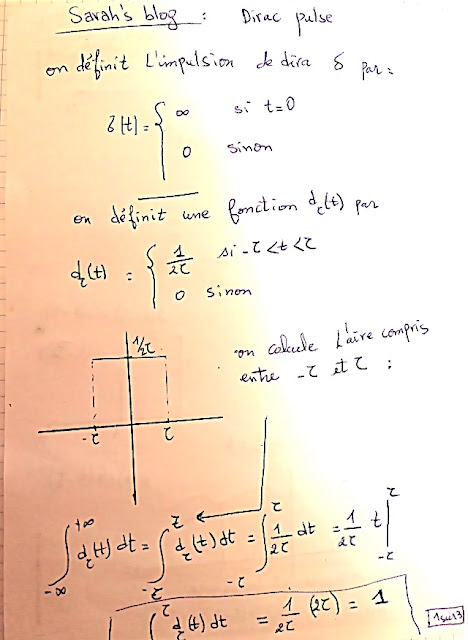 Sarah's blog : Dirac pulse
on définit L'impulsion de dira δ par :
δ(t) = { ∞ si t=0
0 sinon
on définit une fonction d_τ(t) par
d_τ(t) = { 1/2τ si -τ < t < τ
0 sinon
1/2τ
on calcule L'aire compris
entre -τ et τ :
-τ τ
∫_{-∞}^{+∞} d_τ(t) dt = ∫_{-τ}^{τ} d_τ(t) dt = ∫_{-τ}^{τ} 1/2τ dt = 1/2τ t |_{-τ}^{τ}
∫^{τ} d_τ(t) dt = 1/2τ (2τ) = 1